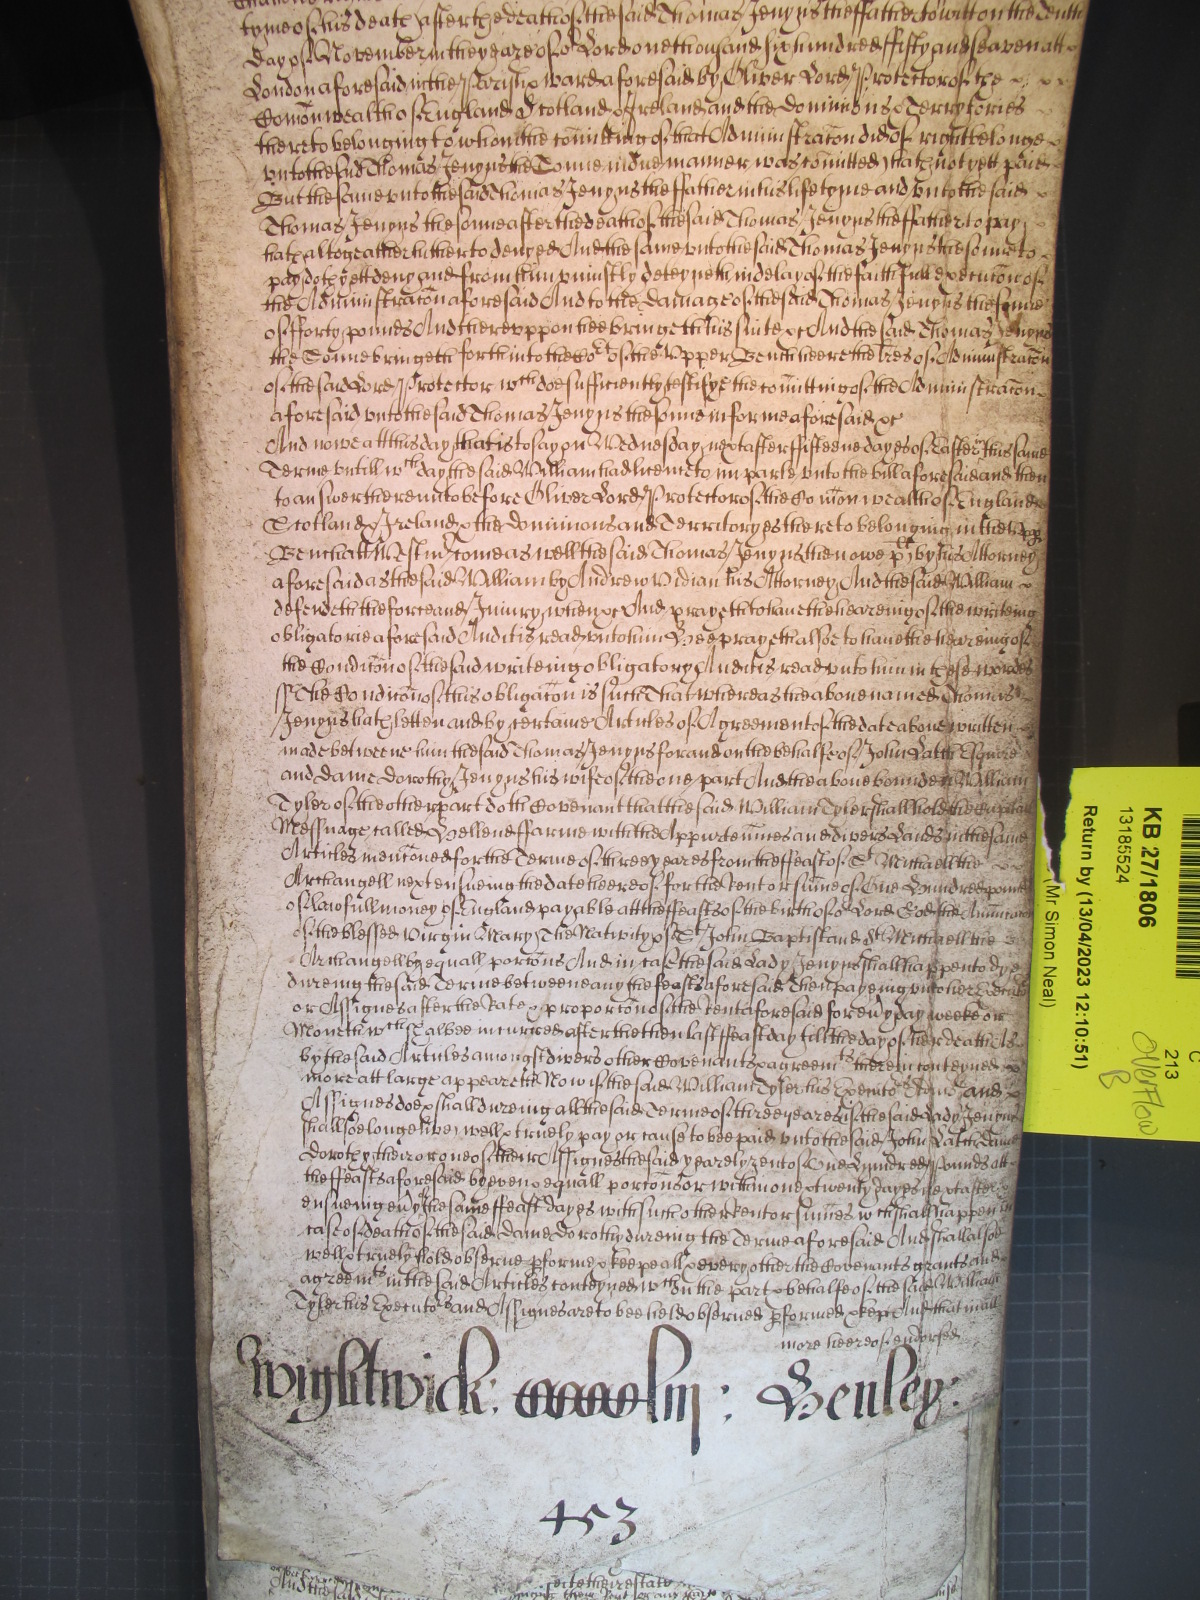 tyme of his death after the death of the said Thomas Jenyns the ffather to witt on the tenth
day of November in the yeare of or Lord one thousand six hundred fifty and seaven att
London aforesaid in the Parish & ward aforesaid by Oliver Lord Protector of the
Comonwealth of England Scotland & Ireland and the Dominions & Terrytories
thereto belonging to whom the comitting of that Administracon did of right belonge
vnto the said Thomas Jenyns the Sonne in due manner was comitted hath not yett paid
But the same vnto the said Thomas Jenyns the ffather in his life tyme and vnto the said
Thomas Jenyns the sonne after the death of the said Thomas Jenyns the ffather to pay
hath altogeather hitherto denyed And the same vnto the said Thomas Jenyns the sonne to
pay doth yett deny and from him vniustly deteyneth in delay of the faithfull execution of
the Administracon aforesaid And to the damage of the said Thomas Jenyns the sonne
of fforty pounds And therevppon hee bringeth his suite &c And the said Thomas Jenyns
the Sonne bringeth forth into the Cort of the Vpper Bench heere the lres of Administracon
of the said Lord Protector wch doe sufficiently testifye the comitting of the Administracon
aforesaid vnto the said Thomas Jenyns the sonne in forme aforesaid &c
And nowe att this day that is to say on Wednesday next after fifteene dayes of Easter this same
Terme vntill wch day the said William had licence to imparle vnto the bill aforesaid and then
to answer therevnto before Oliver Lord Protector of the Comonwealth of England
Scotland & Ireland & the Dominions and Territoryes thereto belonging in the Vpp
Bench att Westmr come as well the said Thomas Jenyns the nowe plt by his Attorney
aforesaid as the said William by Andrew Vidian his Attorney And the said William
defendeth the force and Iniury when &c And prayeth to haue the heareing of the writeing
obligatorie aforesaid And it is read vnto him Hee prayeth alsoe to haue the heareing of
the Condicon of the said writeing obligatory And it is read vnto him in these wordes
ss The Condicon of this obligacon is such That whereas the aboue named Thomas
Jenyns hath letten and by certaine Articles of Agreement of the date aboue written
made betweene him the said Thomas Jenyns for and on the behalfe of John Latch Esquire
and Dame Dorothy Jenyns his wife of the one part And the aboue bounden William
Tyler of the other part doth Covenant that the said William Tyler shall hold the Capitall
Messuage called Hellen ffarme with the Appurtennces and divers Lands in the same
Articles menconed for the Terme of three yeares from the ffeast of St Michaell the
Archangell next ensueing the date heereof for the rent or summe of One Hundred pounds
of lawfull money of England payable att the ffeasts of the birth of or Lord God the Annunciacon
of the blessed Virgin Mary The Nativity of St John Baptist and St Michaell the
Archangell by equall porcons And in case the said Lady Jenyns shall happen to dye
dureing the said Terme betweene any the feasts aforesaid Then payeing vnto her Executors
or Assignes after the Rate & proporcon of the Rent aforesaid for eny day weeke or
Moneth wch shalbee incurred after the then last ffeast day till the day of her death As
by the said Articles amongst divers other Covenants & agreemts therein conteyned
more att large appeareth Now if the said William Tyler his Executors Admrs and
Assignes doe & shall dureing all the said Terme of three yeares if the said Lady Jenyns
shall soe longe live well & truely pay or cause to bee paid vnto the said John Latch Dame
Dorothy their or one of their Assignes the said yearely rent of One Hundred Pounds att
the ffeasts aforesaid by even & equall porcons or within one & twenty dayes next after
ensueing eny of the same ffeast dayes with such other Rent or summes wch shall happen in
case of death of the said Dame Dorothy dureing the Terme aforesaid And shall alsoe
well & truely hold observe pforme & keepe all & every other the Covenants grants and
agreemts in the said Articles conteyned wch on the part & behalfe of the said William
Tyler his Executors and Assignes are to bee held observed pformed & kept And that in all
more heereof endorsed
Wightwick: lm: Henley:
453
KB 27/1806
13185524
Return by (13/04/2023 12:10:51)
(Mr Simon Neal)
C
213
Overflow
B